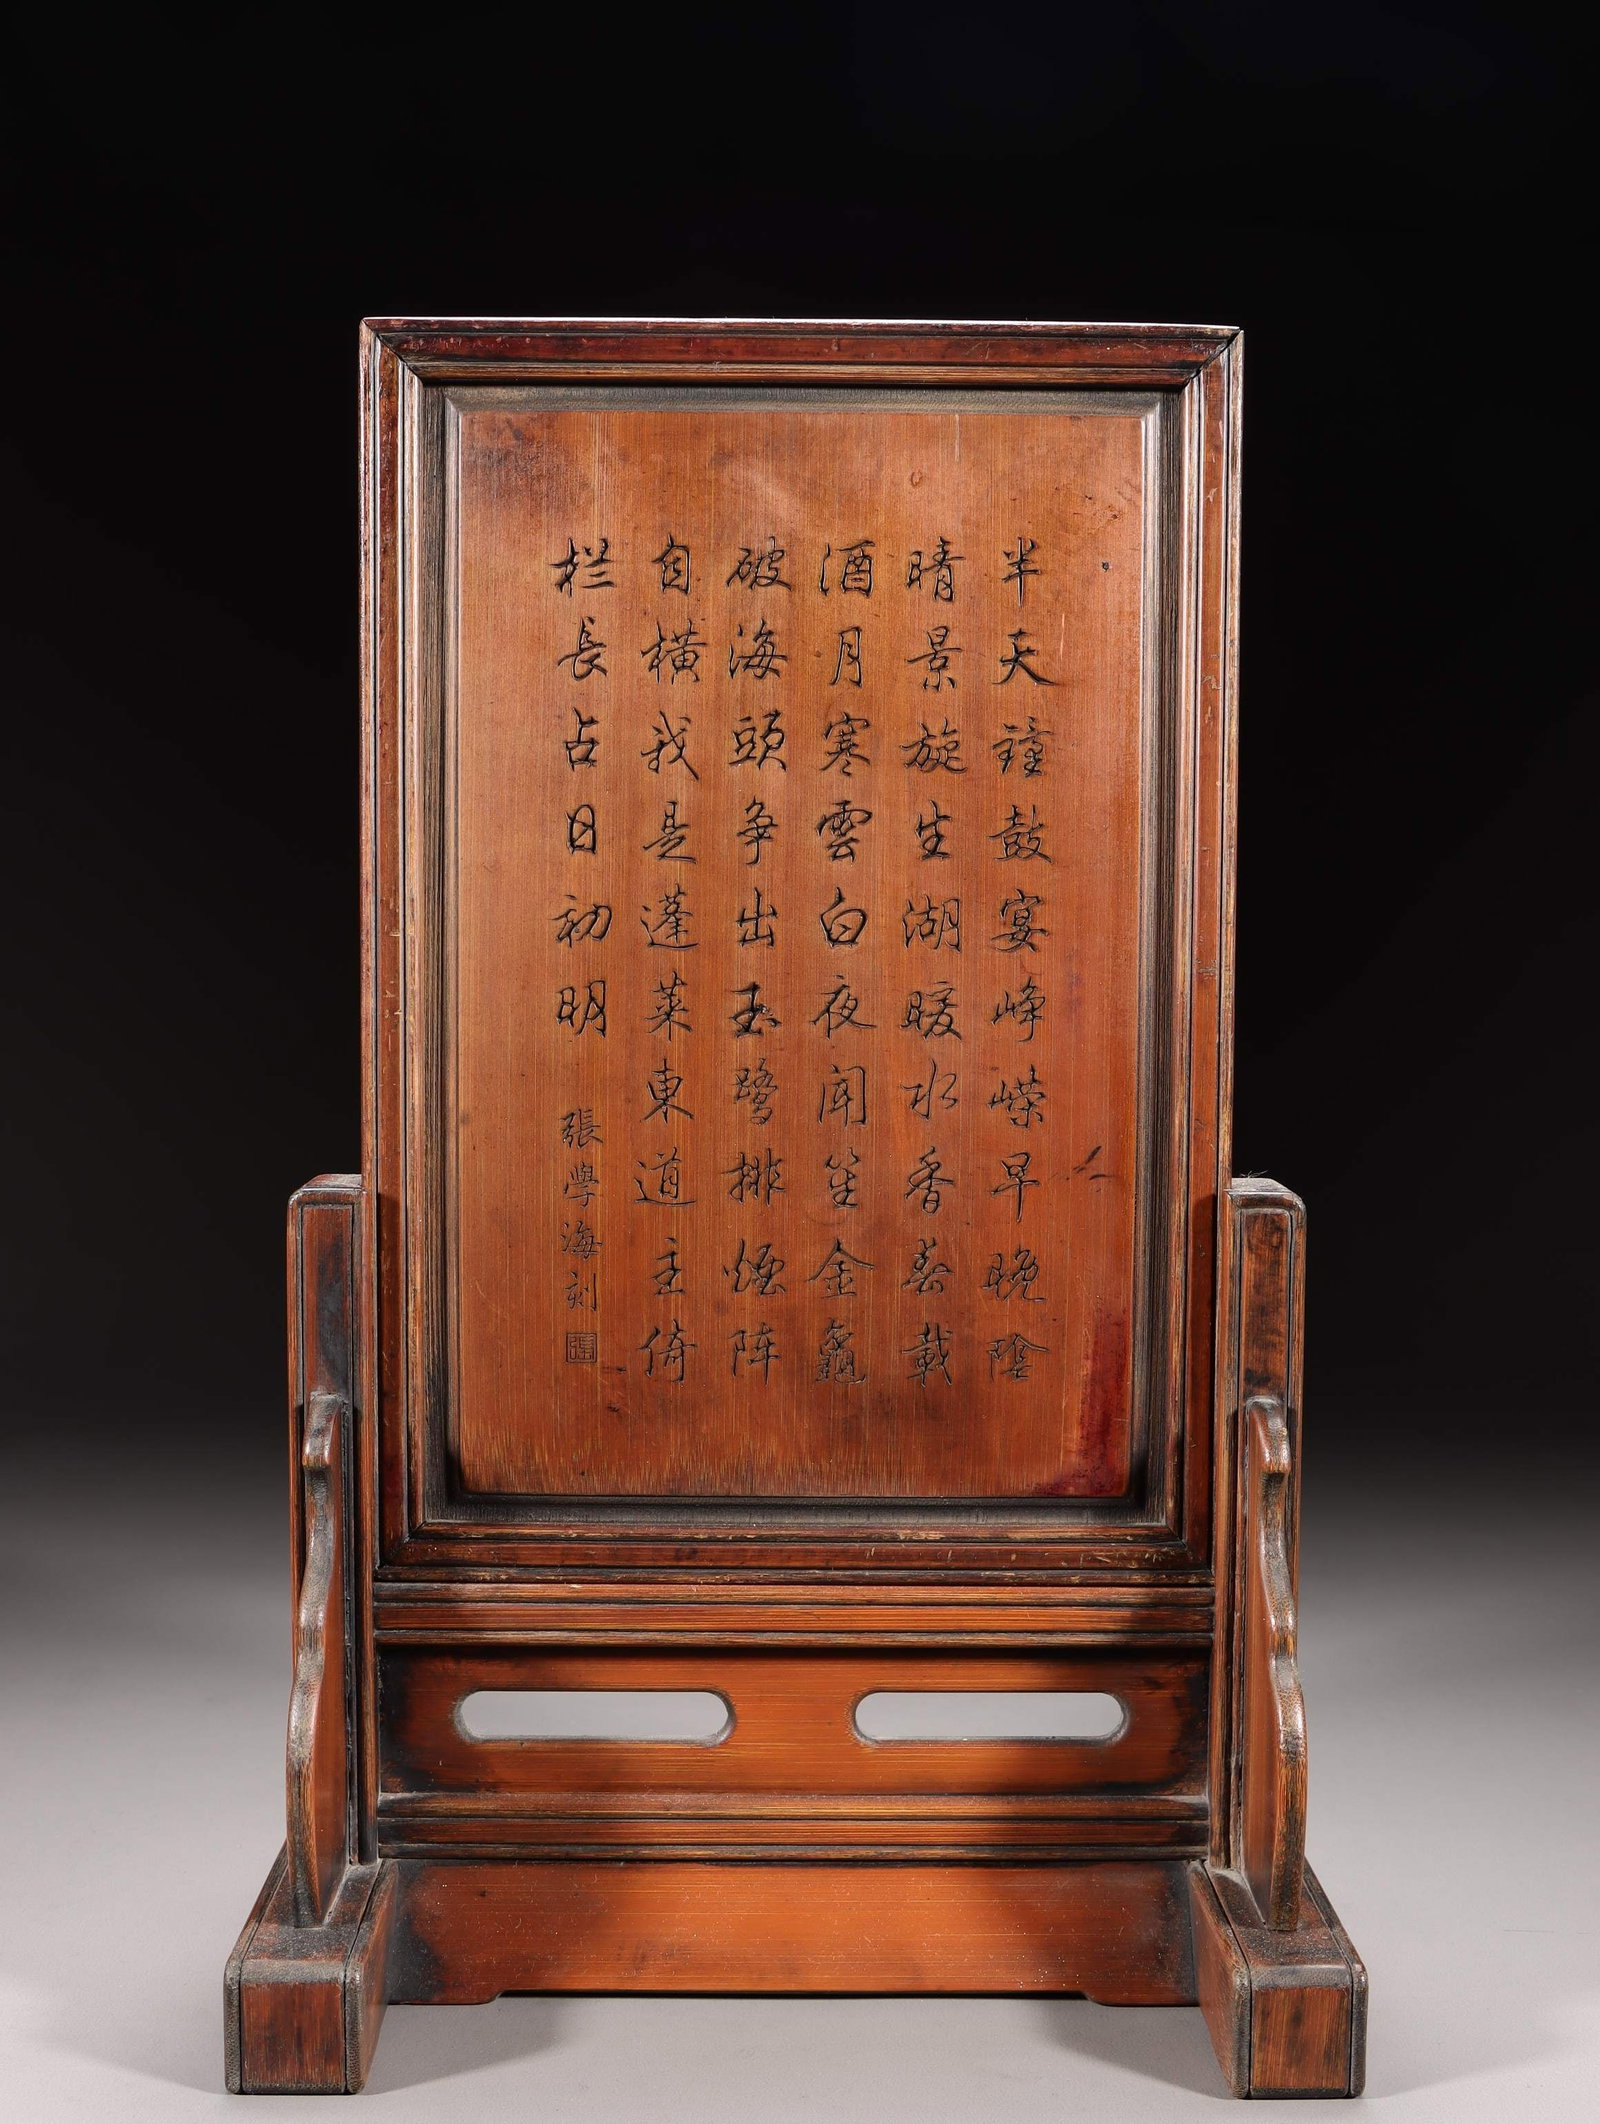 半天鐘鼓宴崢嶸早晚陰
晴景旋生湖暖水香春載
酒月寒雲白夜聞笙金龜
破海頭争出玉鷺排煙陣
自横我是蓬萊東道主倚
栏長占日初明
張學海刻
張